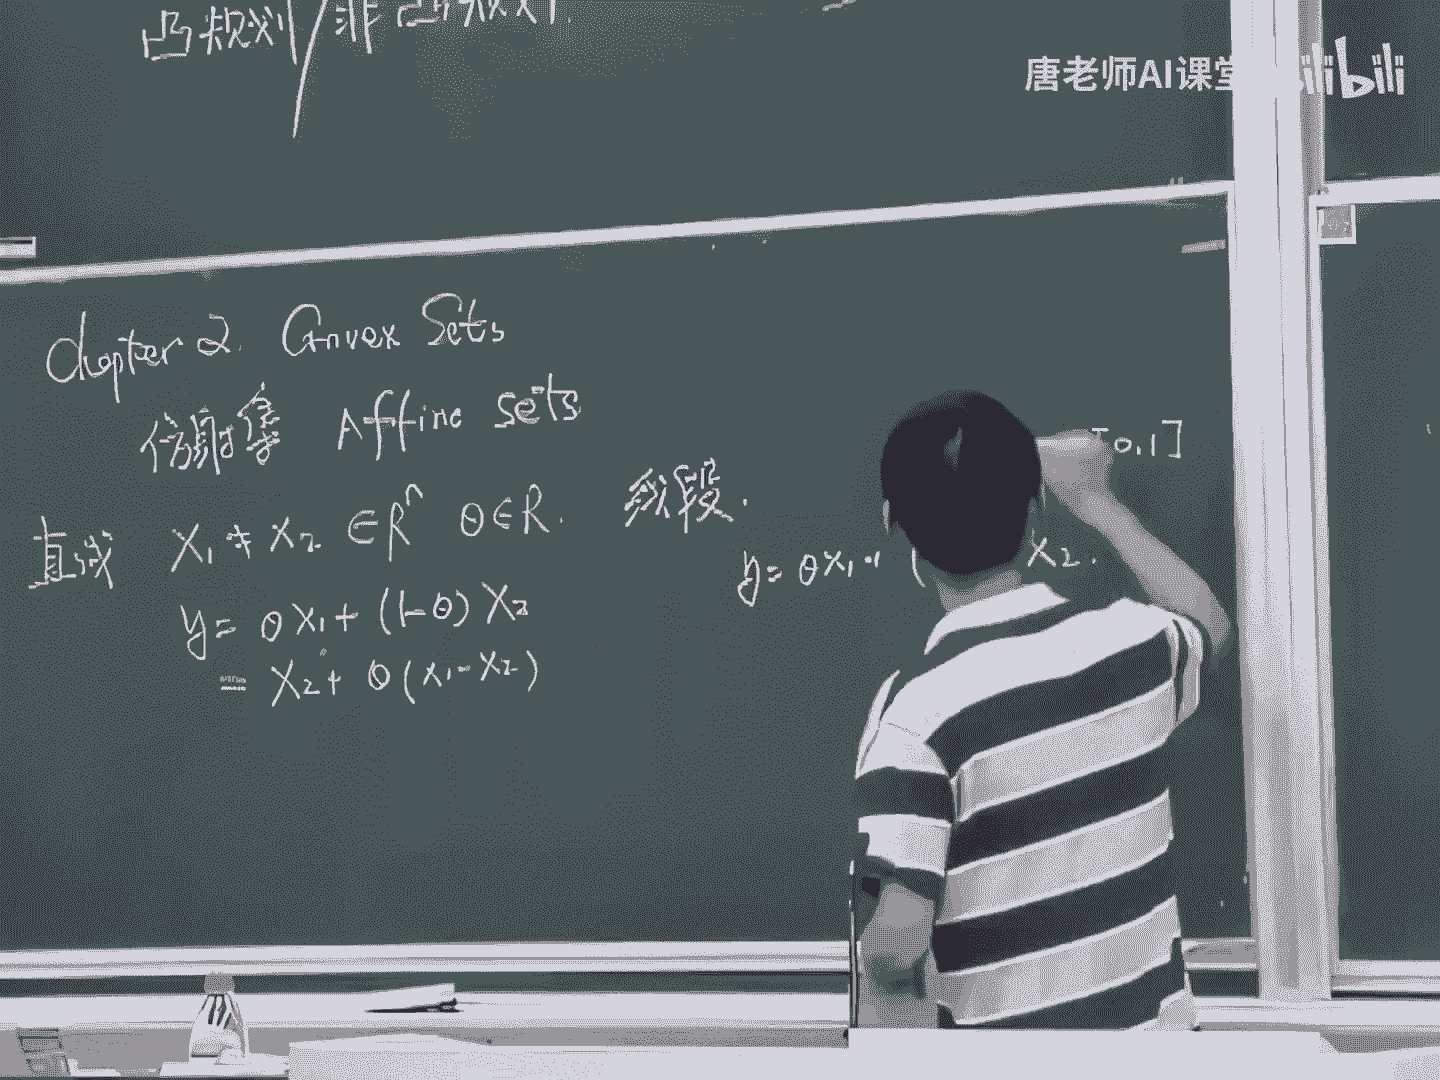 凸规划/非凸规划.
唐老师AI课堂 bilibili
Chapter 2. Convex Sets
仿射集 Affine sets
直线 X₁ ≠ X₂ ∈ Rⁿ θ ∈ R. 线段.
[0,1]
y = θX₁ + (1-θ) X₂
= X₂ + θ(X₁ - X₂)
y = θX₁ + ( X₂.